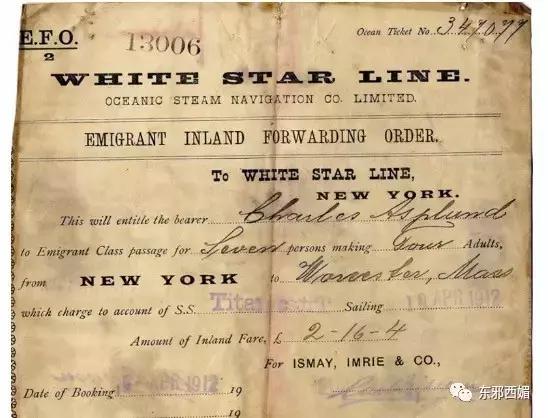 E.F.O. 13006 Ocean Ticket No. 347077
2
WHITE STAR LINE.
OCEANIC STEAM NAVIGATION CO. LIMITED.
EMIGRANT INLAND FORWARDING ORDER.
To WHITE STAR LINE,
NEW YORK.
This will entitle the bearer Charles Asplund
to Emigrant Class passage for Seven persons making Four Adults,
from NEW YORK to Worcester, Mass
which charge to account of S.S. Titanic Sailing 10 APR 1912
Amount of Inland Fare, £ 2-16-4
For ISMAY, IMRIE & CO.,
Date of Booking APR 1912 19
19
东邪西媚